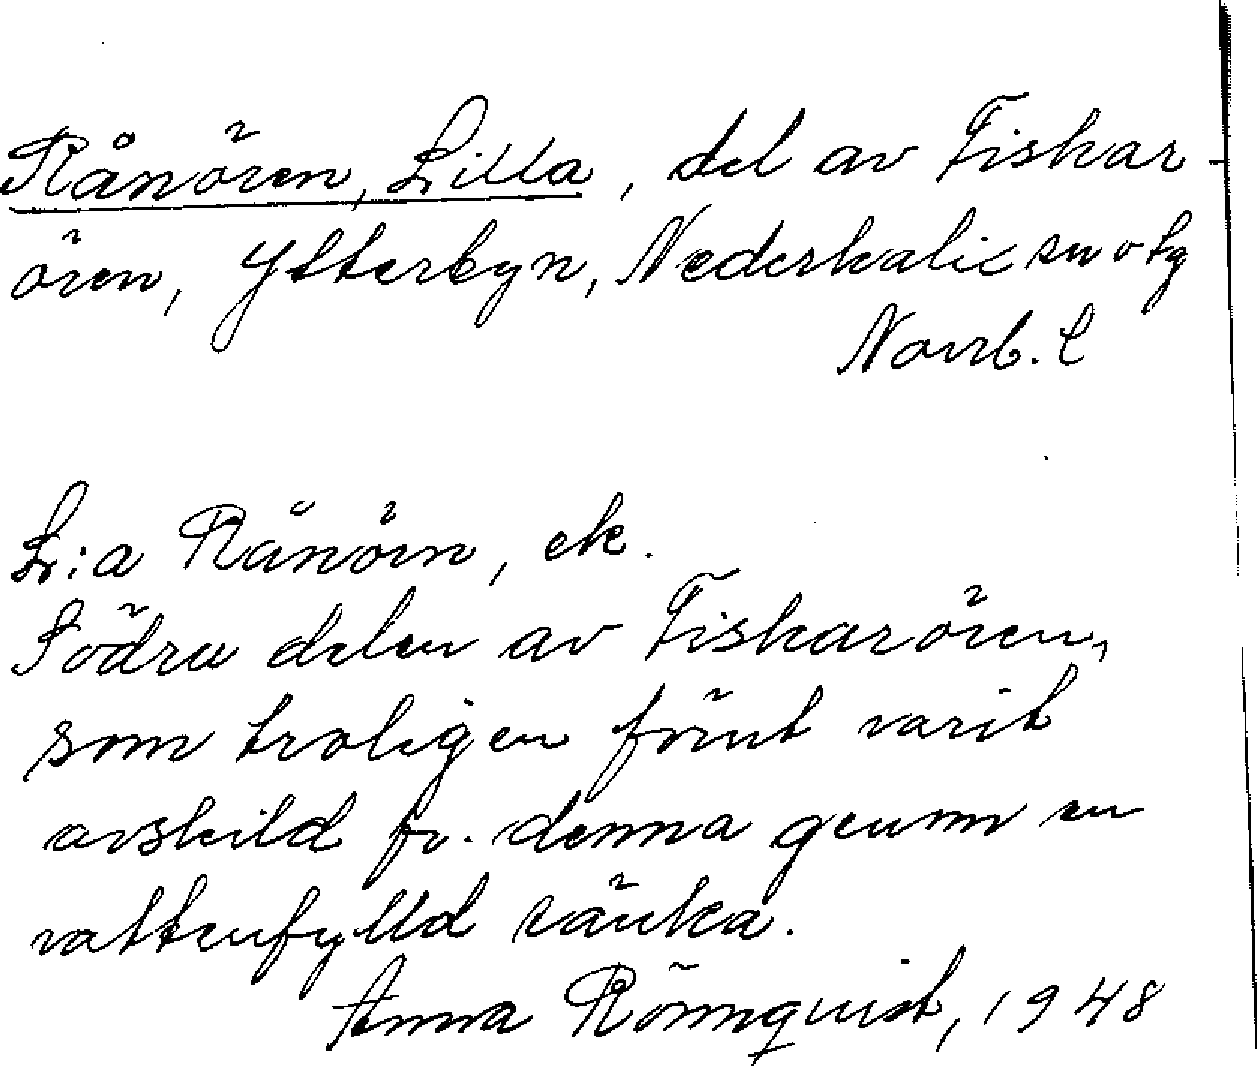 Rånören, Lilla, del av Fiskar-
ören, Ytterbyn, Nederkalix sn o tg
Norrb. l
L:a Rånörn, ek.
Södra delen av Fiskarören,
som troligen förut varit
avskild fr. denna genom en
vattenfylld sänka.
Anna Rönnquist, 1948